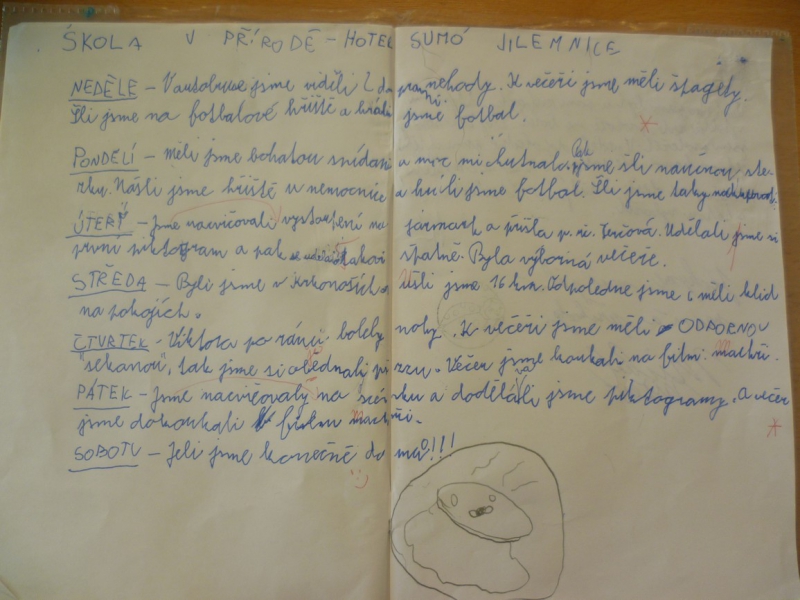 ŠKOLA V PŘÍRODĚ - HOTEL SUMÓ JILEMNICE
NEDĚLE - V autobuse jsme viděli 2 dopravní nehody. K večeři jsme měli špagety.
Šli jsme na fotbalové hřiště a hráli jsme fotbal.
PONDĚLÍ - měli jsme bohatou snídani a moc mi chutnala. Pak jsme šli na
Našli jsme hřiště u nemocnice a hráli jsme fotbal. Šli jsme taky nakupovat.
ÚTERÝ - Jsme nacvičovali vystoupení na jarmark a přišla p. uč. Udělali jsme si
první piktogram a pak špatně. Byla výborná večeře.
STŘEDA - Byli jsme v Krkonoších a Ušli jsme 16 km. Odpoledne jsme měli klid
na pokojích.
ČTVRTEK - Viktora po ránu bolely nohy. K večeři jsme měli ODPORNOU
"sekanou", tak jsme si objednali pizzu. Večer jsme koukali na film. Machři.
PÁTEK - Jsme nacvičovaly na scénku a dodělali jsme piktogramy. A večer
jsme dokoukali film Machři.
SOBOTU - Jeli jsme konečně domů!!!